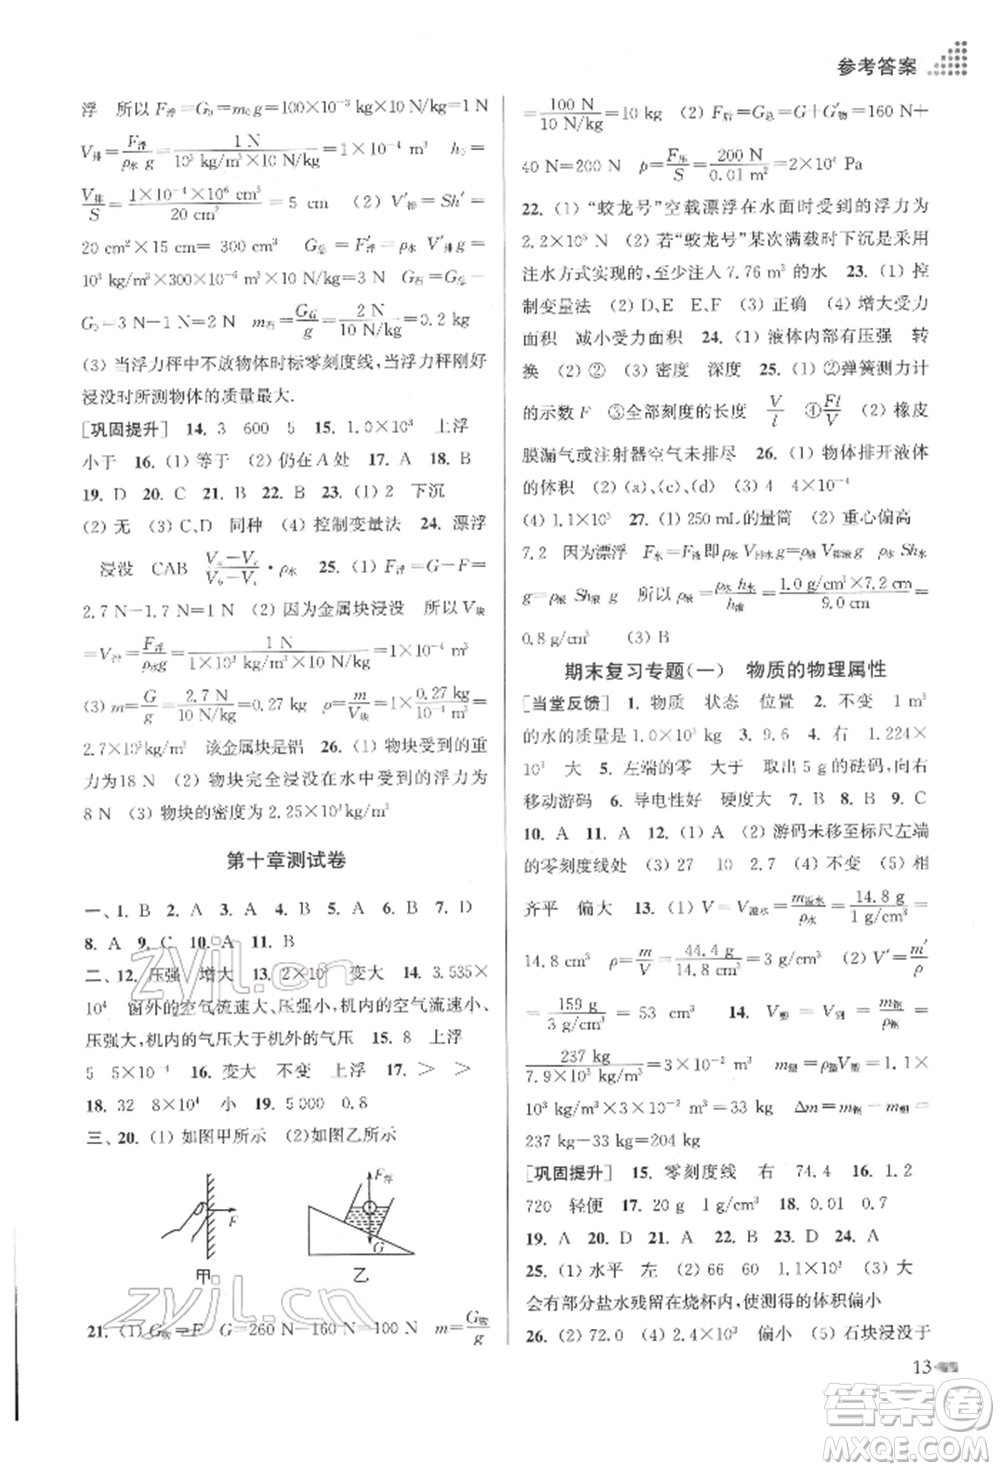 参考答案
浮 所以 F浮=G₀=m₀g=100×10⁻³ kg×10 N/kg=1 N
V排=F浮/ρ水 g=1 N/10³ kg/m³×10 N/kg=1×10⁻⁴ m³ h₀=
V排/S=1×10⁻⁴×10⁶ cm³/20 cm²=5 cm (2) V′排=Sh′=
20 cm²×15 cm=300 cm³ G总=F′浮=ρ水V′排g=
10³ kg/m³×300×10⁻⁶ m³×10 N/kg=3 N G石=G总-
G₀=3 N-1 N=2 N m石=G石/g=2 N/10 N/kg=0.2 kg
(3) 当浮力秤中不放物体时标零刻度线,当浮力秤刚好
浸没时所测物体的质量最大.
[巩固提升] 14. 3 600 5 15. 1.0×10³ 上浮
小于 16. (1) 等于 (2) 仍在 A 处 17. A 18. B
19. D 20. C 21. B 22. B 23. (1) 2 下沉
(2) 无 (3) C、D 同种 (4) 控制变量法 24. 漂浮
浸没 CAB ·ρ水 25. (1) F浮=G-F=
2.7 N-1.7 N=1 N (2) 因为金属块浸没 所以 V块
=V排=F浮/ρ水g=1 N/1×10³ kg/m³×10 N/kg=1×10⁻⁴ m³
(3) m=G/g=2.7 N/10 N/kg=0.27 kg ρ=m/V块=0.27 kg/1×10⁻⁴ m³=
2.7×10³ kg/m³ 该金属块是铝 26. (1) 物块受到的重
力为18 N (2) 物块完全浸没在水中受到的浮力为
8 N (3) 物块的密度为 2.25×10³kg/m³
第十章测试卷
一、1. B 2. A 3. A 4. A 5. B 6. B 7. D
8. A 9. C 10. A 11. B
二、12. 压强 增大 13. 2×10⁵ 变大 14. 3.535×
10⁴ 窗外的空气流速大、压强小,机内的空气流速小、
压强大,机内的气压大于机外的气压 15. 8 上浮
5 5×10⁻⁴ 16. 变大 不变 上浮 17. > >
18. 32 8×10⁴ 小 19. 5 000 0.8
三、20. (1) 如图甲所示 (2)如图乙所示
F
甲
F浮
G
乙
21. (1) G物=F G=260 N-160 N=100 N m=G物/g
=100 N/10 N/kg=10 kg (2) F后=G总=G+G′物=160 N+
40 N=200 N p=F压/S=200 N/0.01 m²=2×10⁴ Pa
22. (1) “蛟龙号”空载漂浮在水面时受到的浮力为
2.2×10⁵ N (2) 若“蛟龙号”某次满载时下沉是采用
注水方式实现的,至少注入 7.76 m³ 的水 23. (1) 控
制变量法 (2) D、E E、F (3) 正确 (4) 增大受力
面积 减小受力面积 24. (1) 液体内部有压强 转
换 (2) ② (3) 密度 深度 25. (1) ②弹簧测力计
的示数 F ③全部刻度的长度 V/l ④Fl/V (2) 橡皮
膜漏气或注射器空气未排尽 26. (1) 物体排开液体
的体积 (2) (a)、(c)、(d) (3) 4
(4) 1.1×10³ 27. (1) 250 mL的量筒 (2) 重心偏高
7.2 因为漂浮 F水=F液 即ρ水 V排水g=ρ液V排液g ρ水 Sh水
g=ρ液 Sh液 g ρ液=ρ水 h水/h液=1.0 g/cm³×7.2 cm/9.0 cm=
0.8 g/cm³ (3) B
期末复习专题(一) 物质的物理属性
[当堂反馈] 1. 物质 状态 位置 2. 不变 1 m³
的水的质量是 1.0×10³ kg 3. 9.6 4. 右 1.224×
10³ 大 5. 左端的零 大于 取出 5 g 的砝码,向右
移动游码 6. 导电性好 硬度大 7. B 8. B 9. C
10. A 11. A 12. (1) A (2) 游码未移至标尺左端
的零刻度线处 (3) 27 10 2.7 (4) 不变 (5) 相
齐平 偏大 13. (1) V=V溢水=m溢水/ρ水=14.8 g/1 g/cm³=
14.8 cm³ ρ=m/V=44.4 g/14.8 cm³=3 g/cm³ (2) V′=m′/ρ
=159 g/3 g/cm³=53 cm³ 14. V塑=V钢=m钢/ρ钢=
237 kg/7.9×10³ kg/m³=3×10⁻² m³ m塑=ρ塑V塑=1.1×
10³ kg/m³×3×10⁻² m³=33 kg Δm=m钢-m塑=
237 kg-33 kg=204 kg
[巩固提升] 15. 零刻度线 右 74.4 16. 1.2
720 轻便 17. 20 g 10 g 18. 0.01 0.7
19. D 20. A 21. A 22. B 23. D 24. D
25. (1) 水平 左 (2) 66 60 1.1×10³ (3) 大
会有部分盐水残留在烧杯内,使测得的体积偏小
26. (2) 72.0 (4) 2.4×10³ 偏小 (5) 石块浸没于
13
zyjl.cn
zyjl.cn
答案卷
MXQE.COM